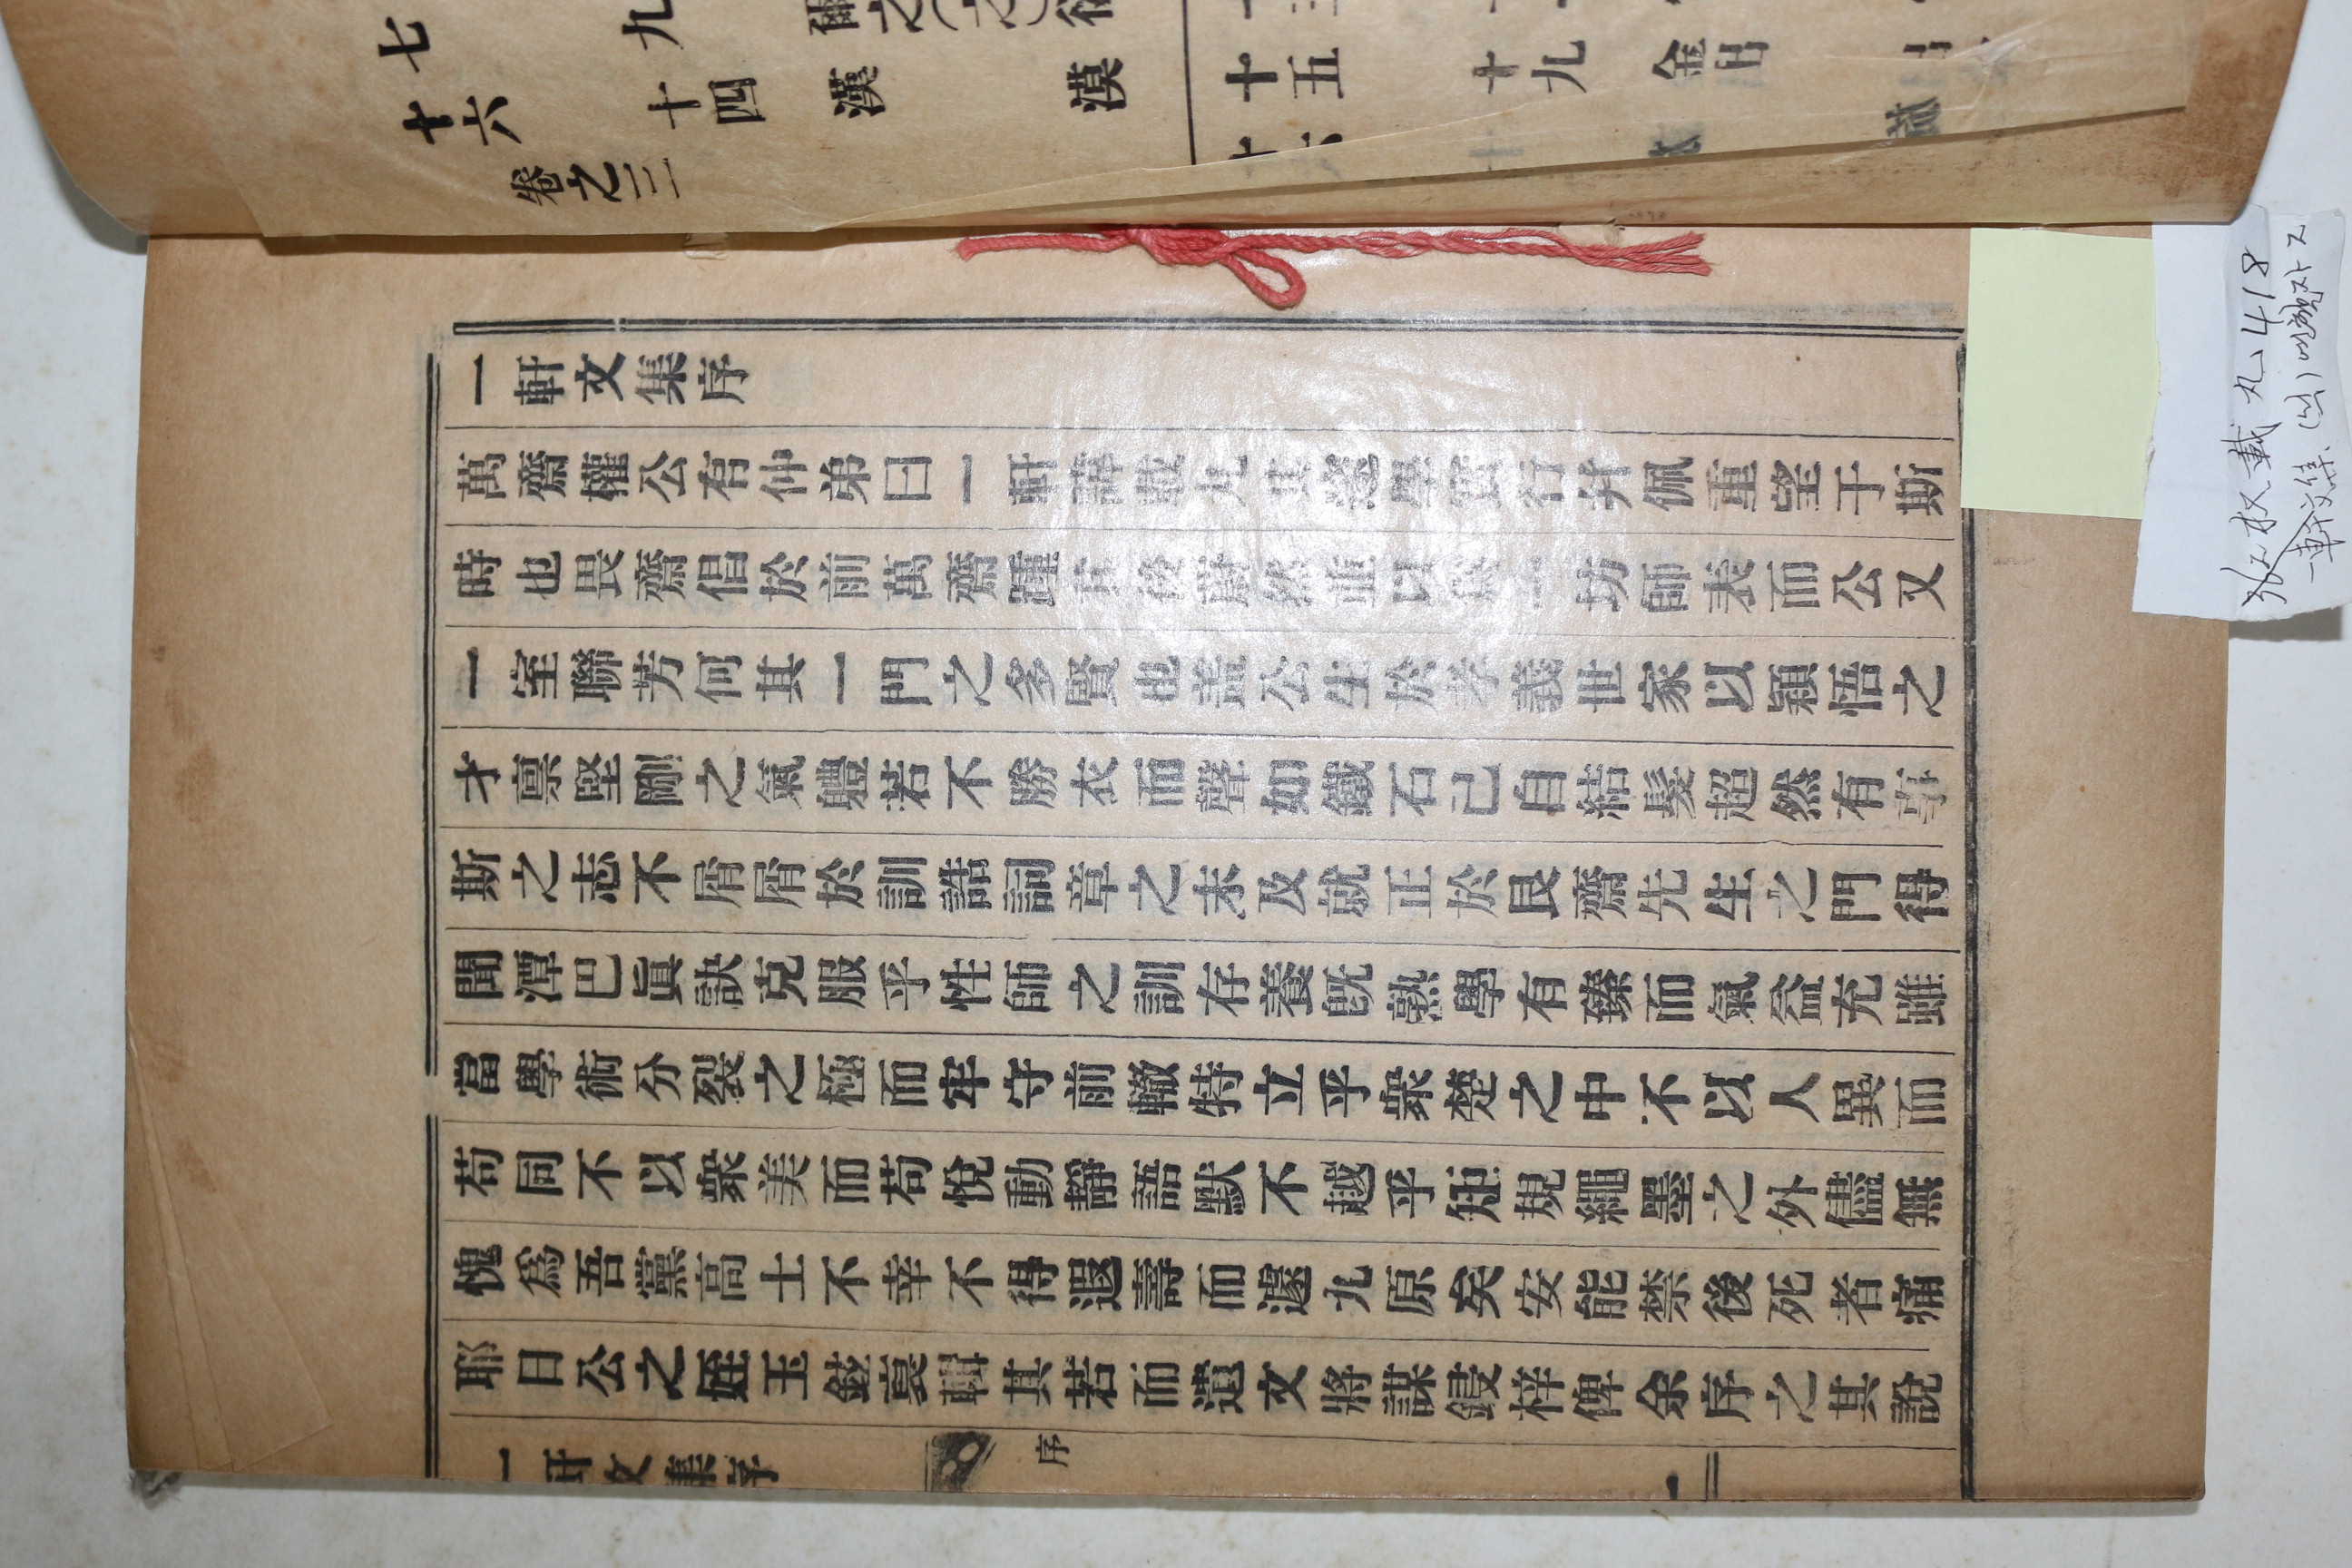 一軒文集序
萬齋權公有仲弟曰一軒諱載丸其邃學實行幷佩重望于斯
時也畏齋倡於前萬齋踵其後蔚然並以爲一坊師表而公又
一室聯芳何其一門之多賢也盖公生於孝義世家以穎悟之
才禀堅剛之氣軆若不勝衣而聲如鐵石己自結髮超然有事
斯之志不屑屑於訓誥詞章之末及就正於艮齋先生之門得
聞潭巴眞訣克服乎性師之訓存養旣熟學有臻而氣益充雖
當學術分裂之極而牢守前轍特立乎衆楚之中不以人異而
苟同不以衆美而苟悅動靜語默不越乎矩規繩墨之外儘無
愧爲吾黨高士不幸不得遐壽而遽九原矣安能禁後死者痛
耶日公之姪玉鉉裒輯其若而遺文將謀鋟梓俾余序之其說
一軒文集序
序
一
卷之三
七
九
爾之(之)
十六
十四
漢
漠
十五
十九
權載丸 418
一軒文集